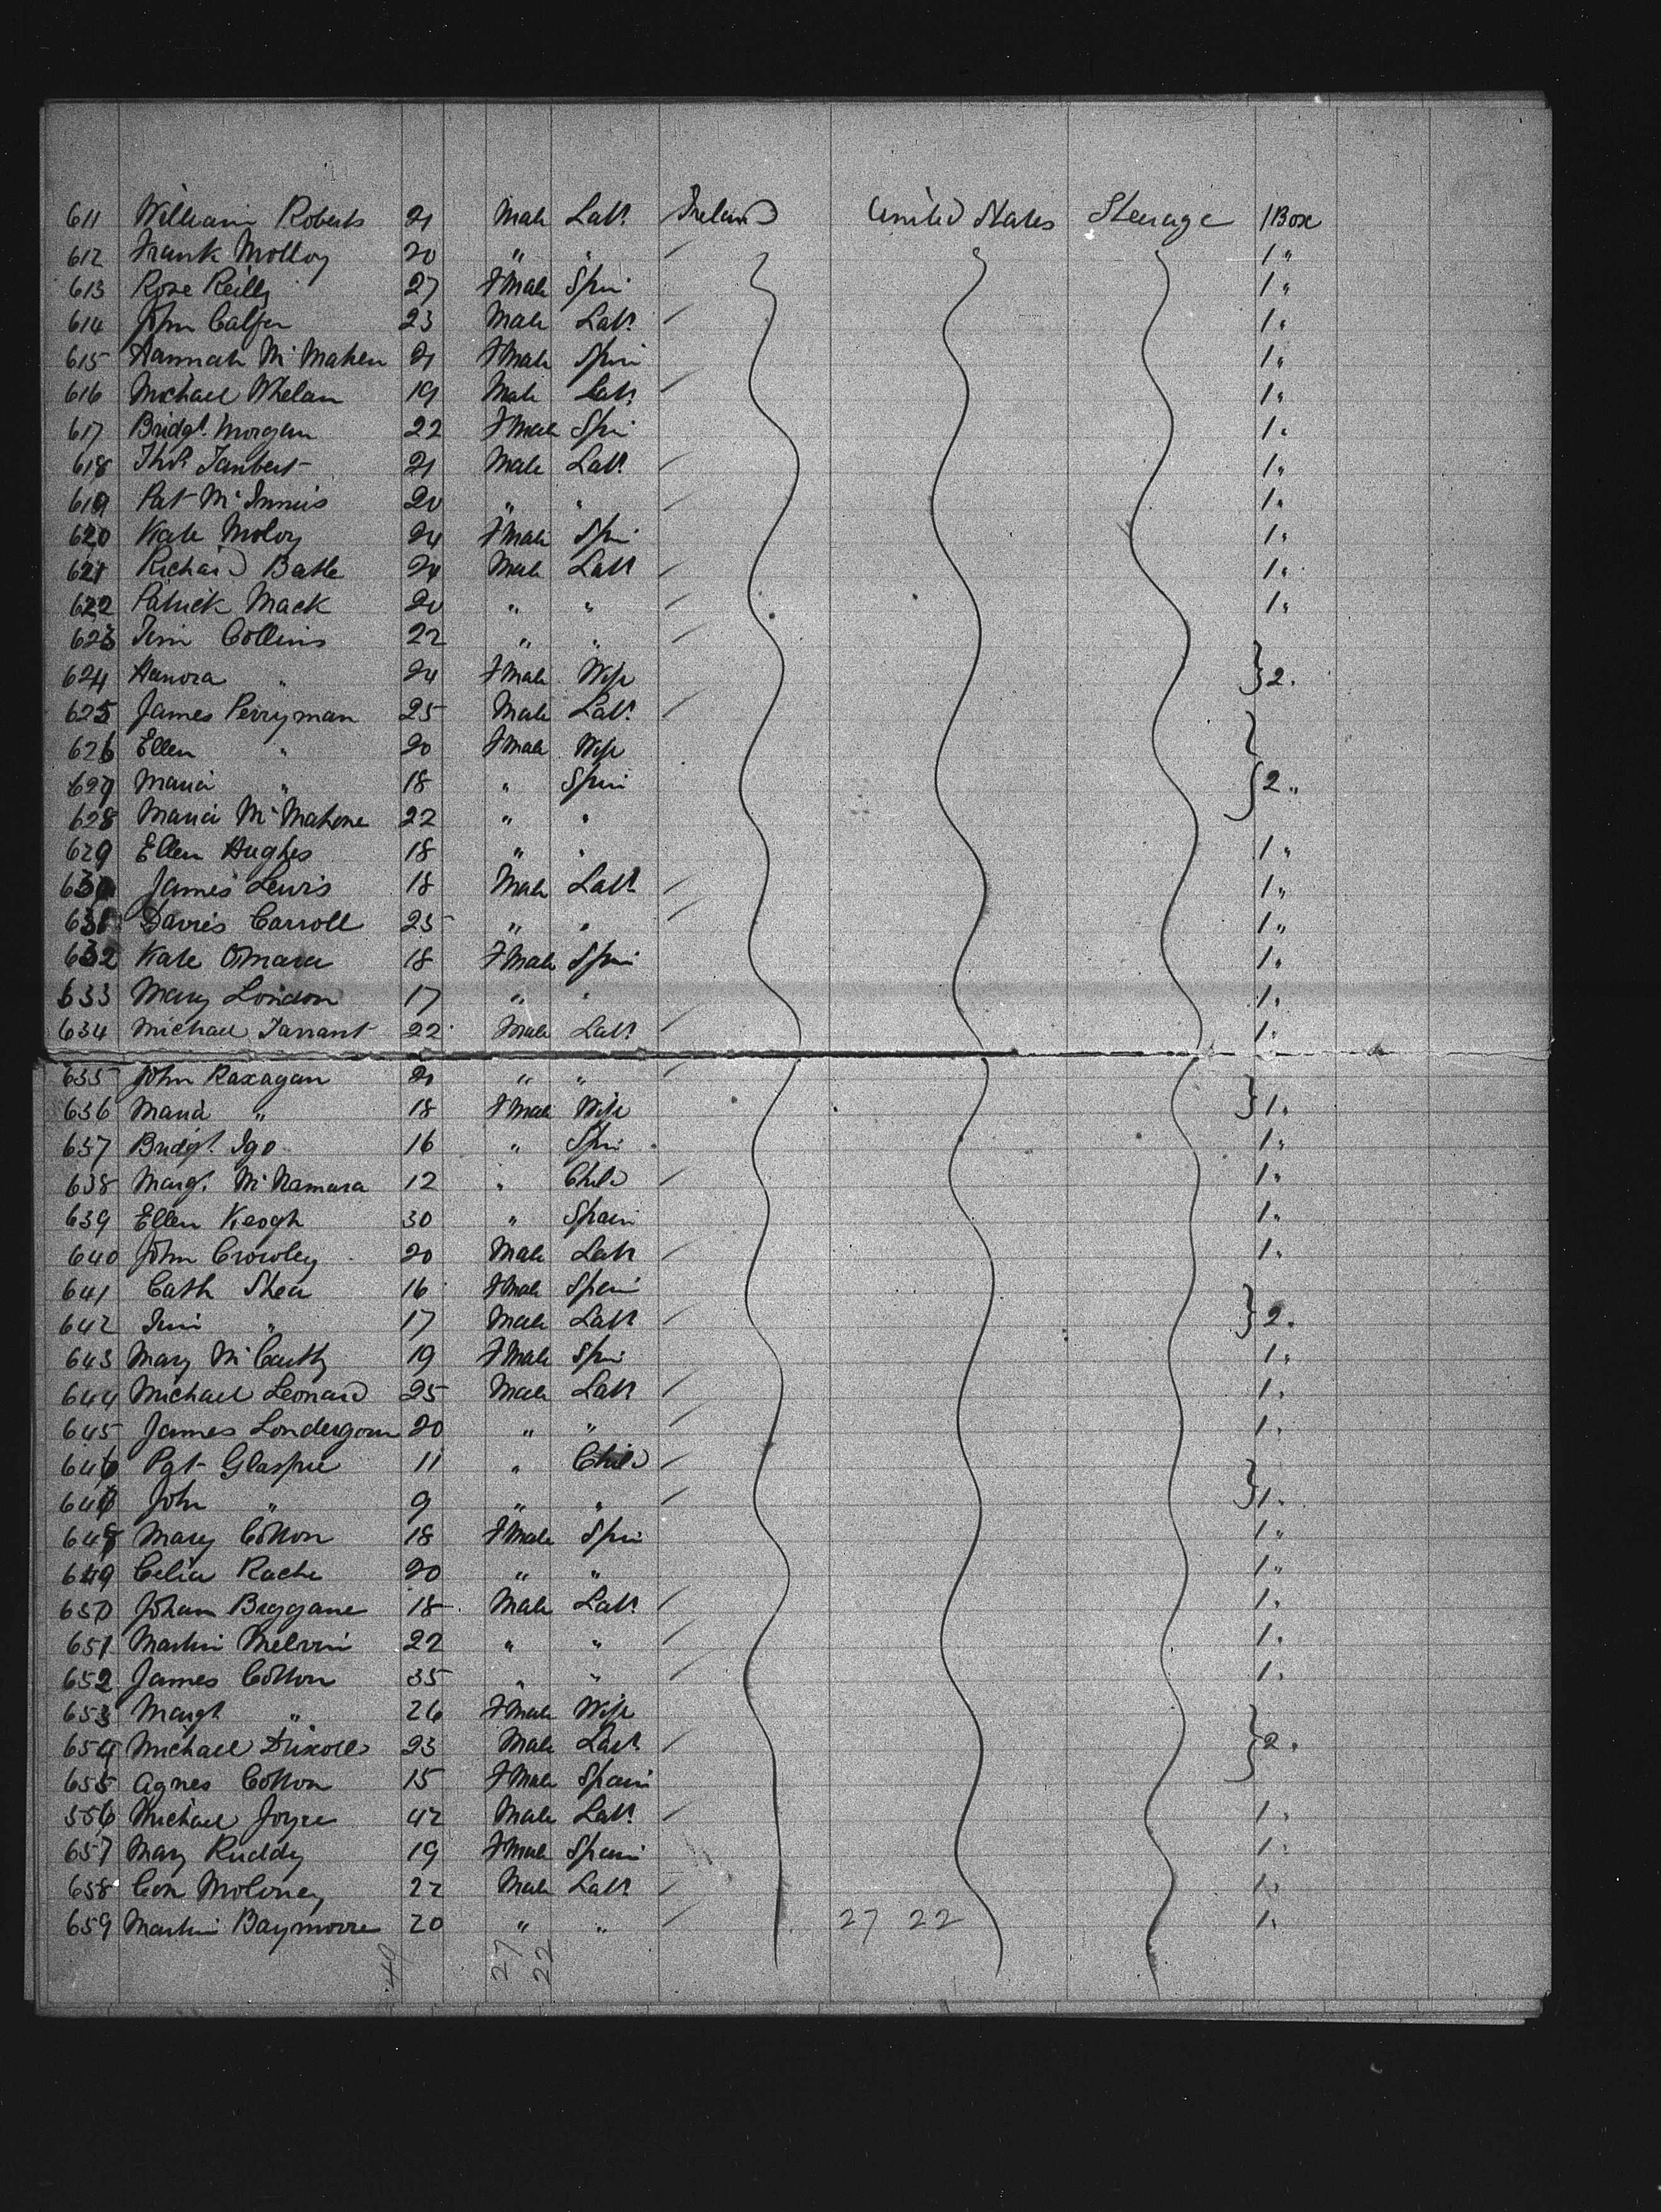 611 William Roberts 21 Male Labr Ireland United States Steerage 1 Box
612 Frank Molloy 20 " " 1 "
613 Rose Reilly 27 Fmale Spin 1 "
614 John 23 Male Labr 1 "
615 Hannah McMahen 21 Fmale Spin 1 "
616 Michael Whelan 19 Male Labr 1 "
617 Bridgt Morgan 22 Fmale Spin 1 "
618 Thos 21 Male Labr 1 "
619 Pat McInnis 20 " " 1 "
620 Kate Moloy 24 Fmale Spin 1 "
621 Richard Batle 24 Male Labr 1 "
622 Patrick Mack 20 " " 1 "
623 Tim Collins 22 " "
624 Hanora " 24 Fmale Wife } 2 "
625 James Perryman 25 Male Labr
626 Ellen " 20 Fmale Wife
627 Maria " 18 " Spin } 2 "
628 Maria McMahone 22 " "
629 Ellen Hughes 18 " " 1 "
630 James Lewis 18 Male Labr 1 "
631 Davies Carroll 25 " " 1 "
632 Kate OMara 18 Fmale Spin 1 "
633 Mary London 17 " " 1 "
634 Michael Tarrant 22 Male Labr 1 "
635 John Raxagan 21 " "
636 Maria " 18 Fmale Wife } 1 "
637 Bridgt Igo 16 " Spin 1 "
638 Margt McNamara 12 " Child 1 "
639 Ellen Keogh 30 " Spain 1 "
640 John Crowley 20 Male Labr 1 "
641 Cath Shea 16 Fmale Spin
642 Tim " 17 Male Labr } 2 "
643 Mary McCarthy 19 Fmale Spin 1 "
644 Michael Leonard 25 Male Labr 1 "
645 James Londergom 20 " " 1 "
646 Pat Glaspie 11 " Child
647 John " 9 " " } 1 "
648 Mary Cotton 18 Fmale Spin 1 "
649 Celia Rache 20 " " 1 "
650 Johan Biggane 18 Male Labr 1 "
651 Martin Melvin 22 " " 1 "
652 James Cotton 35 " " 1 "
653 Margt " 26 Fmale Wife
654 Michael Driscoll 23 Male Labr } 2 "
655 Agnes Cotton 15 Fmale Spain
656 Michael Joyce 42 Male Labr 1 "
657 Mary Ruddy 19 Fmale Spain 1 "
658 Con Moloney 22 Male Labr 1 "
659 Martin Baymorre 20 " " 27 22 1 "
27 22